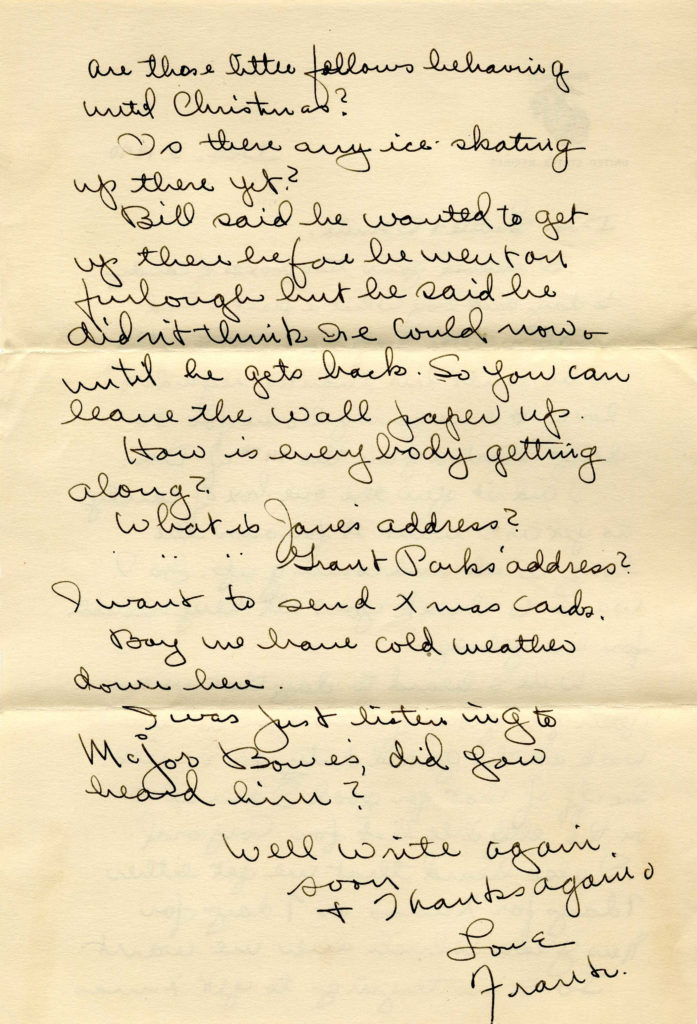 are those little fellows behaving
until Christmas?
Is there any ice-skating
up there yet?
Bill said he wanted to get
up there before he went on
furlough but he said he
didn't think he could now
until he gets back. So you can
leave the wall paper up.
How is everybody getting
along?
What is Jane's address?
" " " Grant Parks' address?
I want to send Xmas cards.
Boy we have cold weather
down here.
I was just listening to
Major Bowes, did you
heard him?
Well write again
soon
+ Thanks again
Love
Frank.